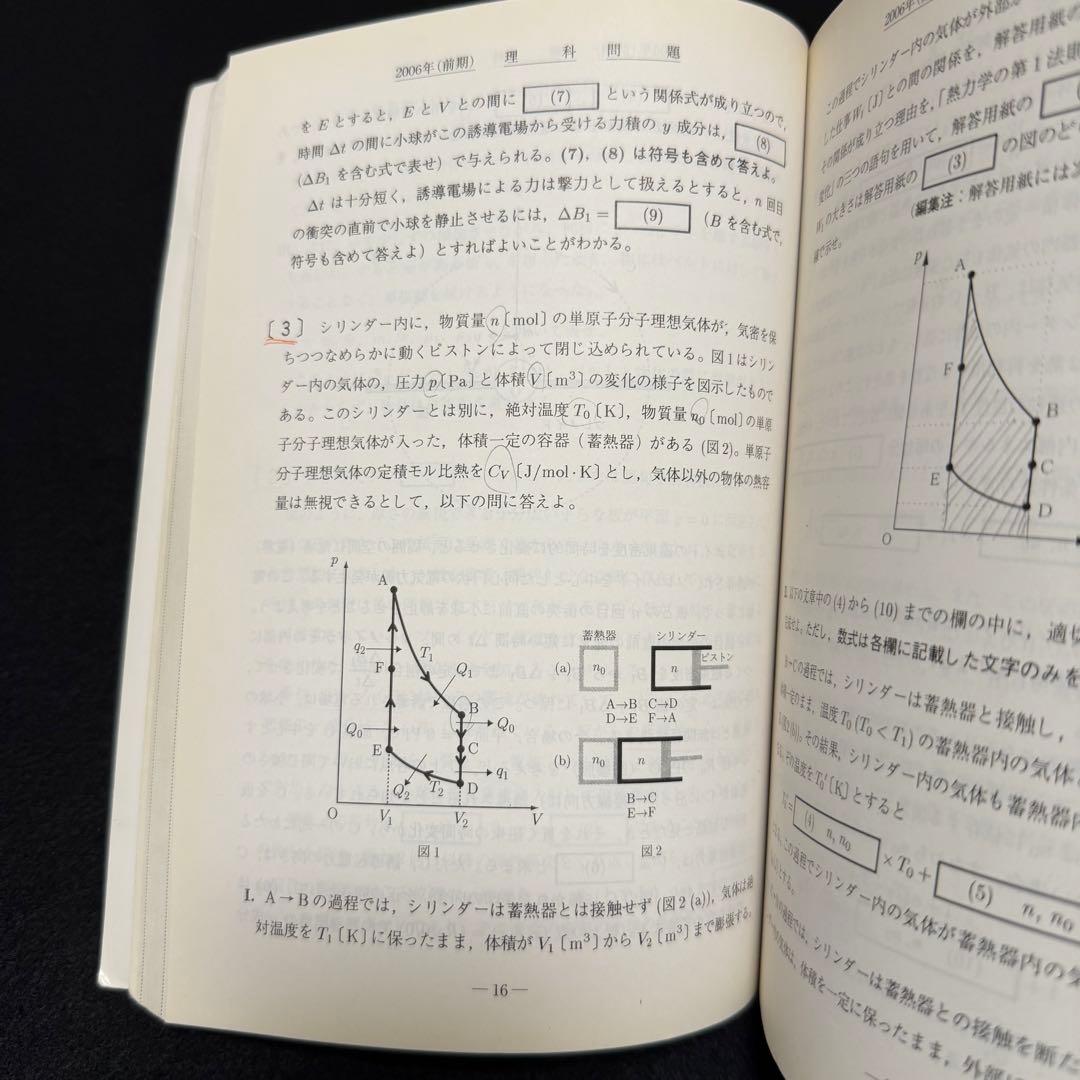 2006年(前期) 理科問題
をEとすると，EとVとの間に (7) という関係式が成り立つので，
時間Δtの間に小球がこの誘導電場から受ける力積のy成分は， (8)
(ΔB₁を含む式で表せ) で与えられる。(7)，(8)は符号も含めて答えよ。
Δtは十分短く，誘導電場による力は撃力として扱えるとすると，n回目
の衝突の直前で小球を静止させるには，ΔB₁＝ (9) (Bを含む式で，
符号も含めて答えよ) とすればよいことがわかる。
〔3〕 シリンダー内に，物質量n〔mol〕の単原子分子理想気体が，気密を保
ちつつなめらかに動くピストンによって閉じ込められている。図1はシリン
ダー内の気体の，圧力p〔Pa〕と体積V〔m³〕の変化の様子を図示したもので
ある。このシリンダーとは別に，絶対温度T₀〔K〕，物質量n₀〔mol〕の単原
子分子理想気体が入った，体積一定の容器（蓄熱器）がある (図2)。単原子
分子理想気体の定積モル比熱をC_V〔J/mol・K〕とし，気体以外の物体の熱容
量は無視できるとして，以下の問に答えよ。
p
A
q₂
T₁
F
Q₁
B
Q₀
Q₀
C
E
q₁
Q₂
T₂
D
O
V₁
V₂
V
図1
蓄熱器 シリンダー
(a) n₀ n ピストン
A→B C→D
D→E F→A
(b) n₀ n
B→C
E→F
図2
I. A→Bの過程では，シリンダーは蓄熱器とは接触せず (図2(a))，気体は絶
対温度をT₁〔K〕に保ったまま，体積がV₁〔m³〕からV₂〔m³〕まで膨張する。
—16—
2006年(
この過程でシリンダー内の気体が外部
した仕事W₁〔J〕との間の関係を，解答用紙の
その関係が成り立つ理由を，「熱力学の第1法則
変化」の三つの語句を用いて，解答用紙の
W₁の大きさは解答用紙の (3) の図のど
(編集注：解答用紙には次
線で示せ。
p
A
F
B
E
C
D
O
以下の文章中の(4)から(10)までの欄の中に，適
成せよ。ただし，数式は各欄に記載した文字のみを
B→Cの過程では，シリンダーは蓄熱器と接触し，
一定のまま，温度T₀(T₀＜T₁)の蓄熱器内の気体
。その結果，シリンダー内の気体も蓄熱器
，その温度をT₀′〔K〕とすると
T₀′＝ (4) n, n₀ ×T₀＋ (5) n, n₀
，この過程でシリンダー内の気体が蓄熱器内の気
とする。
の過程では，シリンダーは蓄熱器との接触を断
の気体は，体積を一定に保ったまま，外部